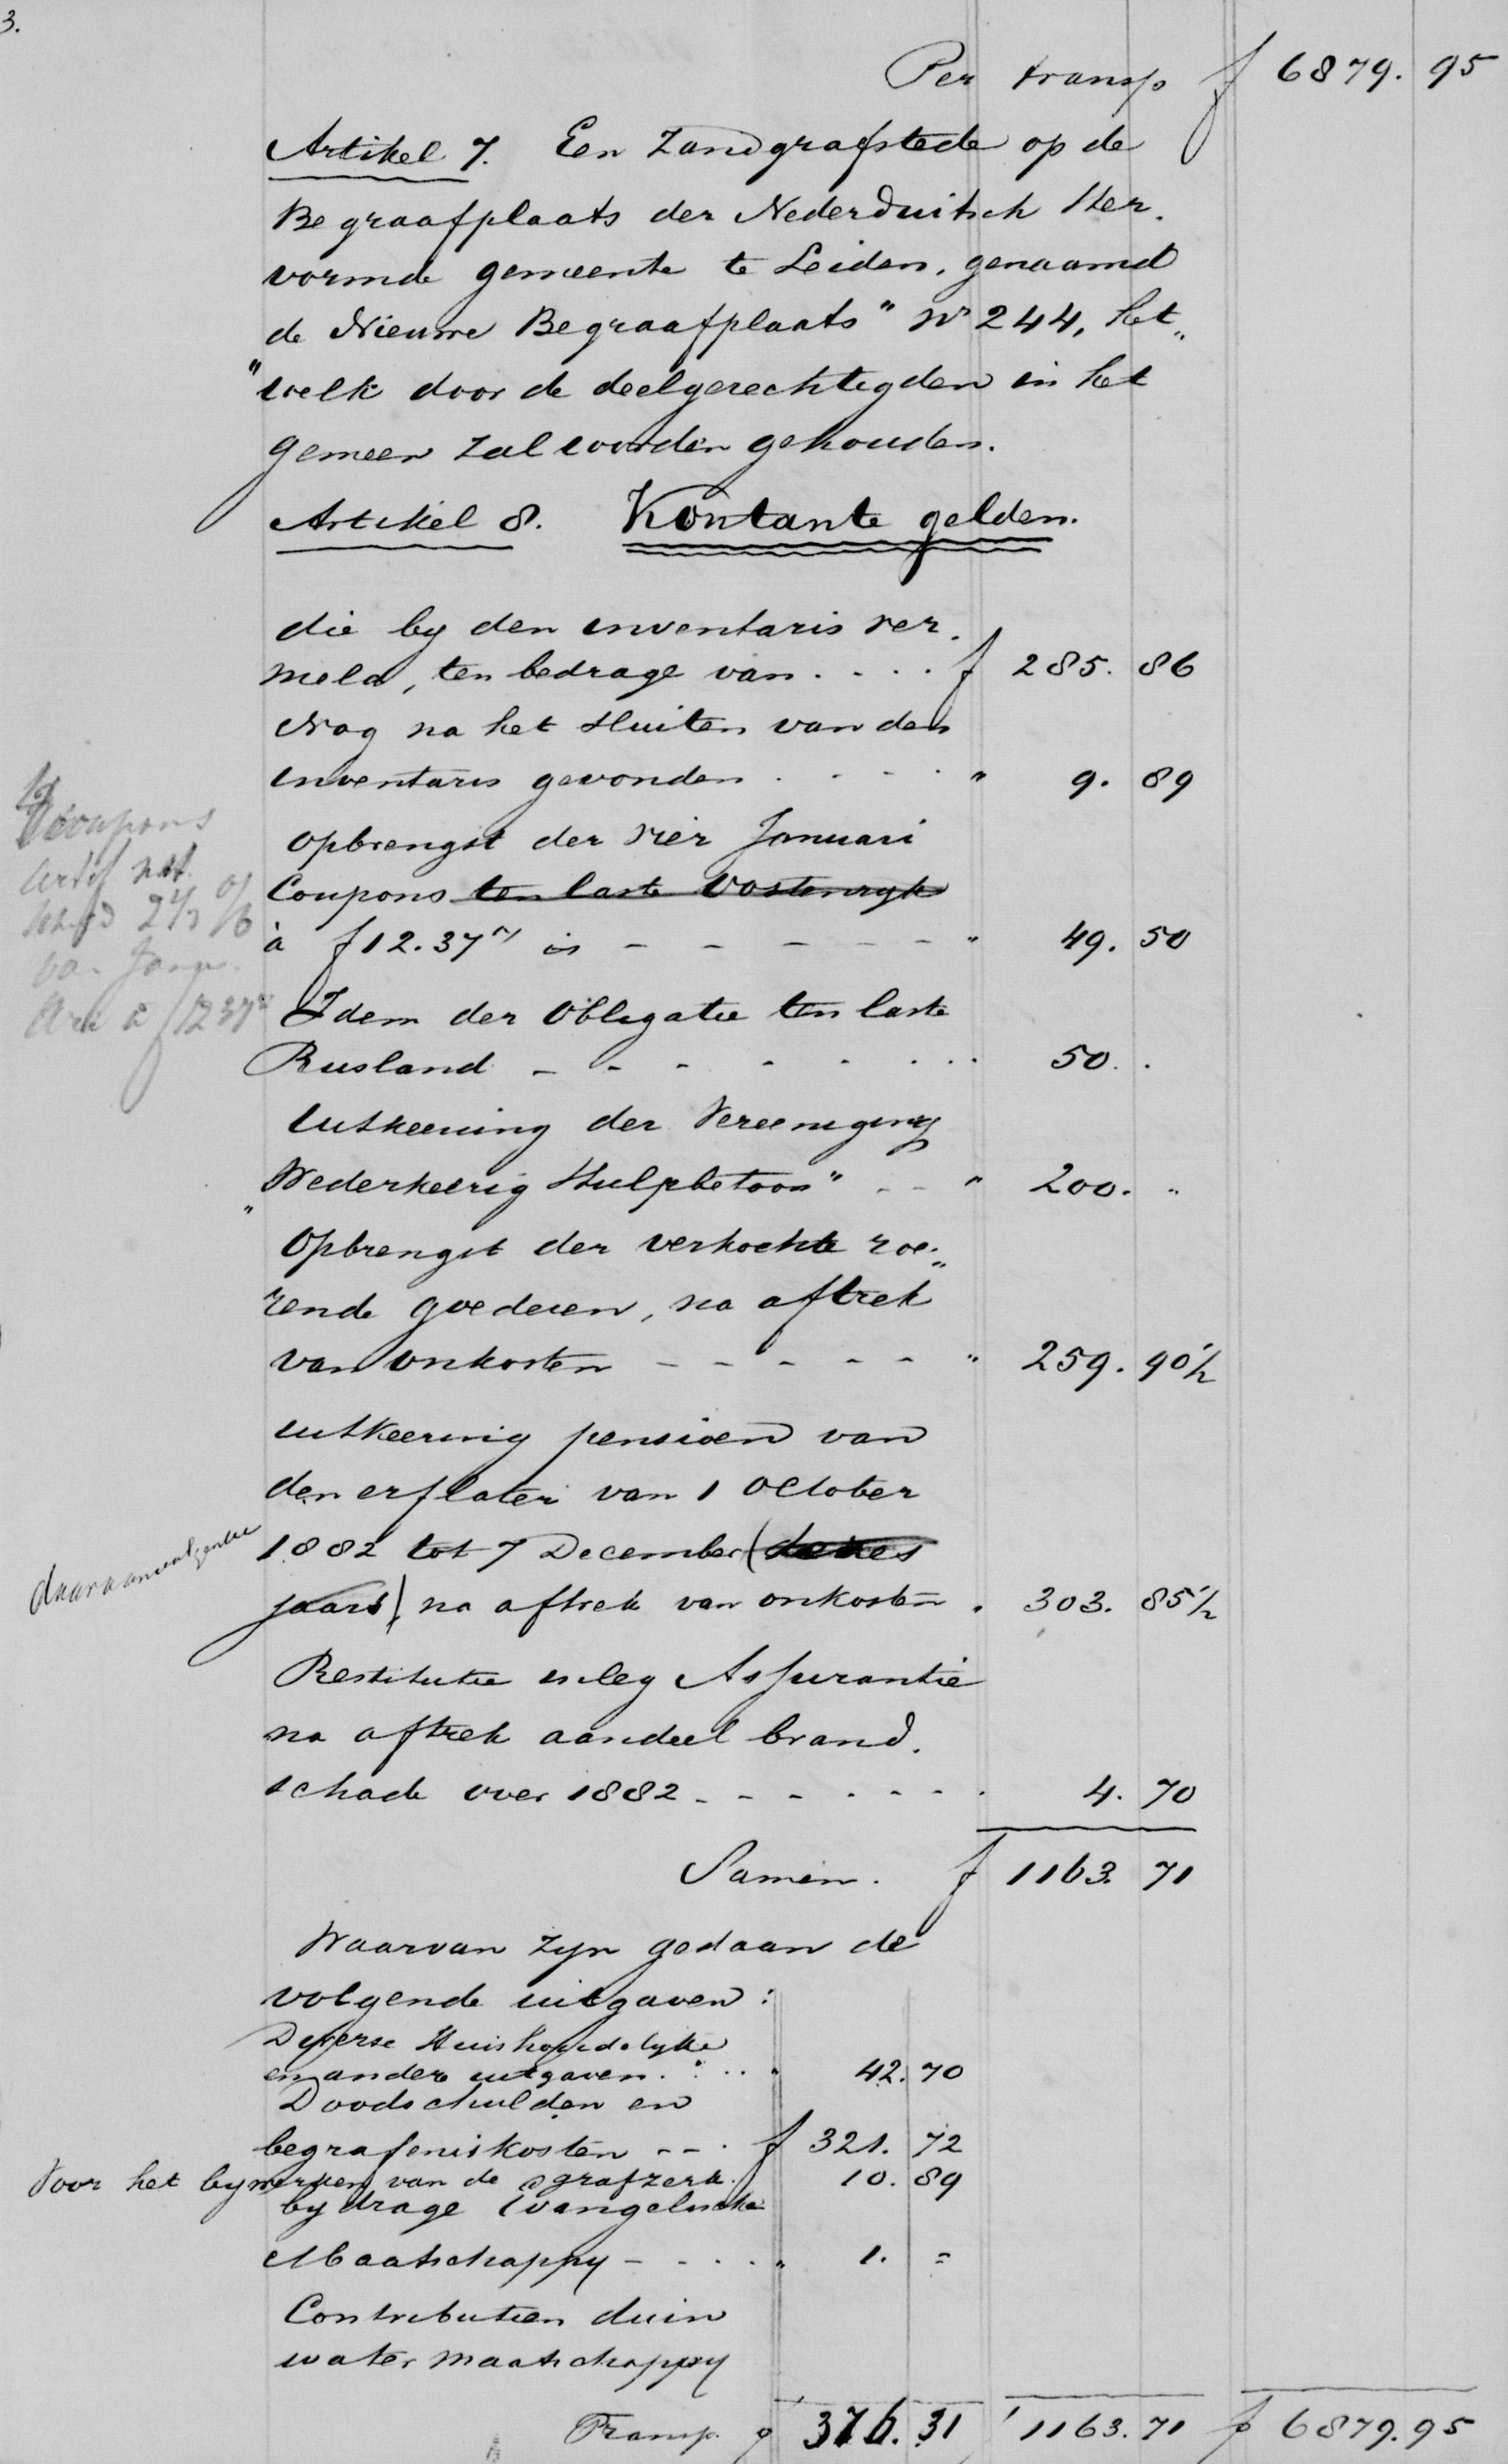 3.
Per transp f 6879. 95
Artikel 7. Een Zandgrafstede op de
Begraafplaats der Nederduitsch Her.
vormde gemeente te Leiden, genaamd
„de Nieuwe Begraafplaats" No 244, het„
welk door de deelgerechtigden in het
gemeen zal worden gehouden.
Artikel 8. Kontante gelden.
die by den inventaris ver.
meld, ten bedrage van . . . . f 285. 86
Nog na het sluiten van den
inventaris gevonden . . . . " 9. 89
Opbrengst der vier Januari
Coupons ten laste Oostenryk
à f 12.37⁵ is - - - - - - " 49. 50
coupons
certif nat.
van Janu
ari à f 12 37⁵
Idem der Obligatie ten laste
Rusland - - - - - . . . 50. .
Uitkeering der Vereeniging
„Wederkeerig Hulpbetoon" - - " 200. "
Opbrengst der verkochte roe„
rende goederen, na aftrek
van onkosten - - - - - " 259. 90½
uitkeering pensioen van
den erflater van 1 October
1882 tot 7 December (dezes
daaraanvolgende
jaars) na aftrek van onkosten . 303. 85½
Restitutie inleg Assurantie
na aftrek aandeel brand.
schade over 1882 - - - - - - 4. 70
Samen. f 1163. 71
Waarvan zyn gedaan de
volgende uitgaven:
Diverse Huishoudelyke
en andere uitgaven. . . . " 42. 70
Doodschulden en
begrafeniskosten - - . f 321. 72
Voor het bywerken van de grafzerk. 10. 89
bydrage Evangelische
Maatschappy - . . . " 1. =
Contributien duin
water maatschappy
Transp. f 376. 31 f 1163. 71 f 6879. 95